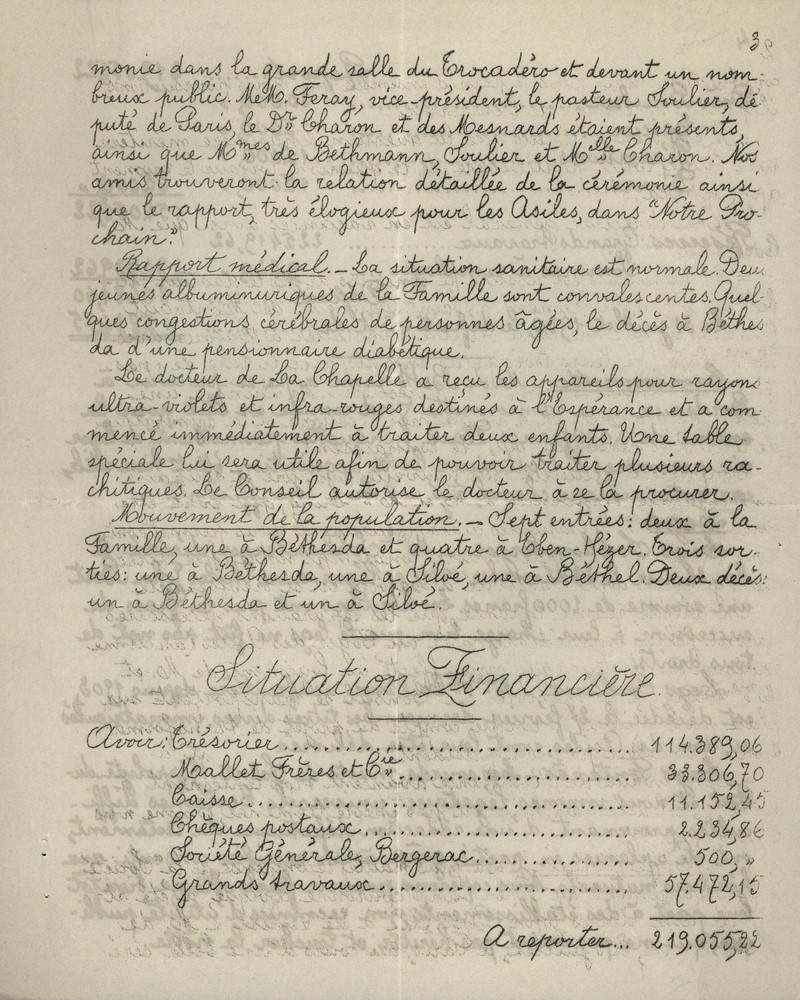 3
monie dans la grande salle du Trocadéro et devant un nom-
breux public. MeM. Feray, vice-président, le pasteur Soulier, dé
puté de Paris, le Dr Charon et des Mesnards étaient présents,
ainsi que Mmes de Bethmann, Soulier et Melle Charon. Nos
amis trouveront la relation détaillée de la cérémonie ainsi
que le rapport, très élogieux pour les Asiles, dans "Notre Pro-
chain."
Rapport médical. – La situation sanitaire est normale. Deux
jeunes albuminuriques de la Famille sont convalescentes. Quel-
ques congestions cérébrales de personnes âgées, le décès à Béthes
da d'une pensionnaire diabétique.
Le docteur de La Chapelle a reçu les appareils pour rayons
ultra-violets et infra-rouges destinés à l'Espérance et a com
mencé immédiatement à traiter deux enfants. Une table
spéciale lui sera utile afin de pouvoir traiter plusieurs ra-
chitiques. Le Conseil autorise le docteur à se la procurer.
Mouvement de la population. – Sept entrées: deux à la
Famille, une à Béthesda et quatre à Eben-Hézer. Trois sor-
ties: une à Béthesda, une à Siloé, une à Béthel. Deux décès:
un à Béthesda et un à Siloé.
Situation Financière.
Avoir: Trésorier.............................. 114.389,06
Mallet Frères et Cie........................ 33.306,70
Caisse.................................... 11.152,45
Chèques postaux........................... 2.234,86
Société Générale, Bergerac................ 500, "
Grands travaux............................ 57.472,15
A reporter... 219.055,22